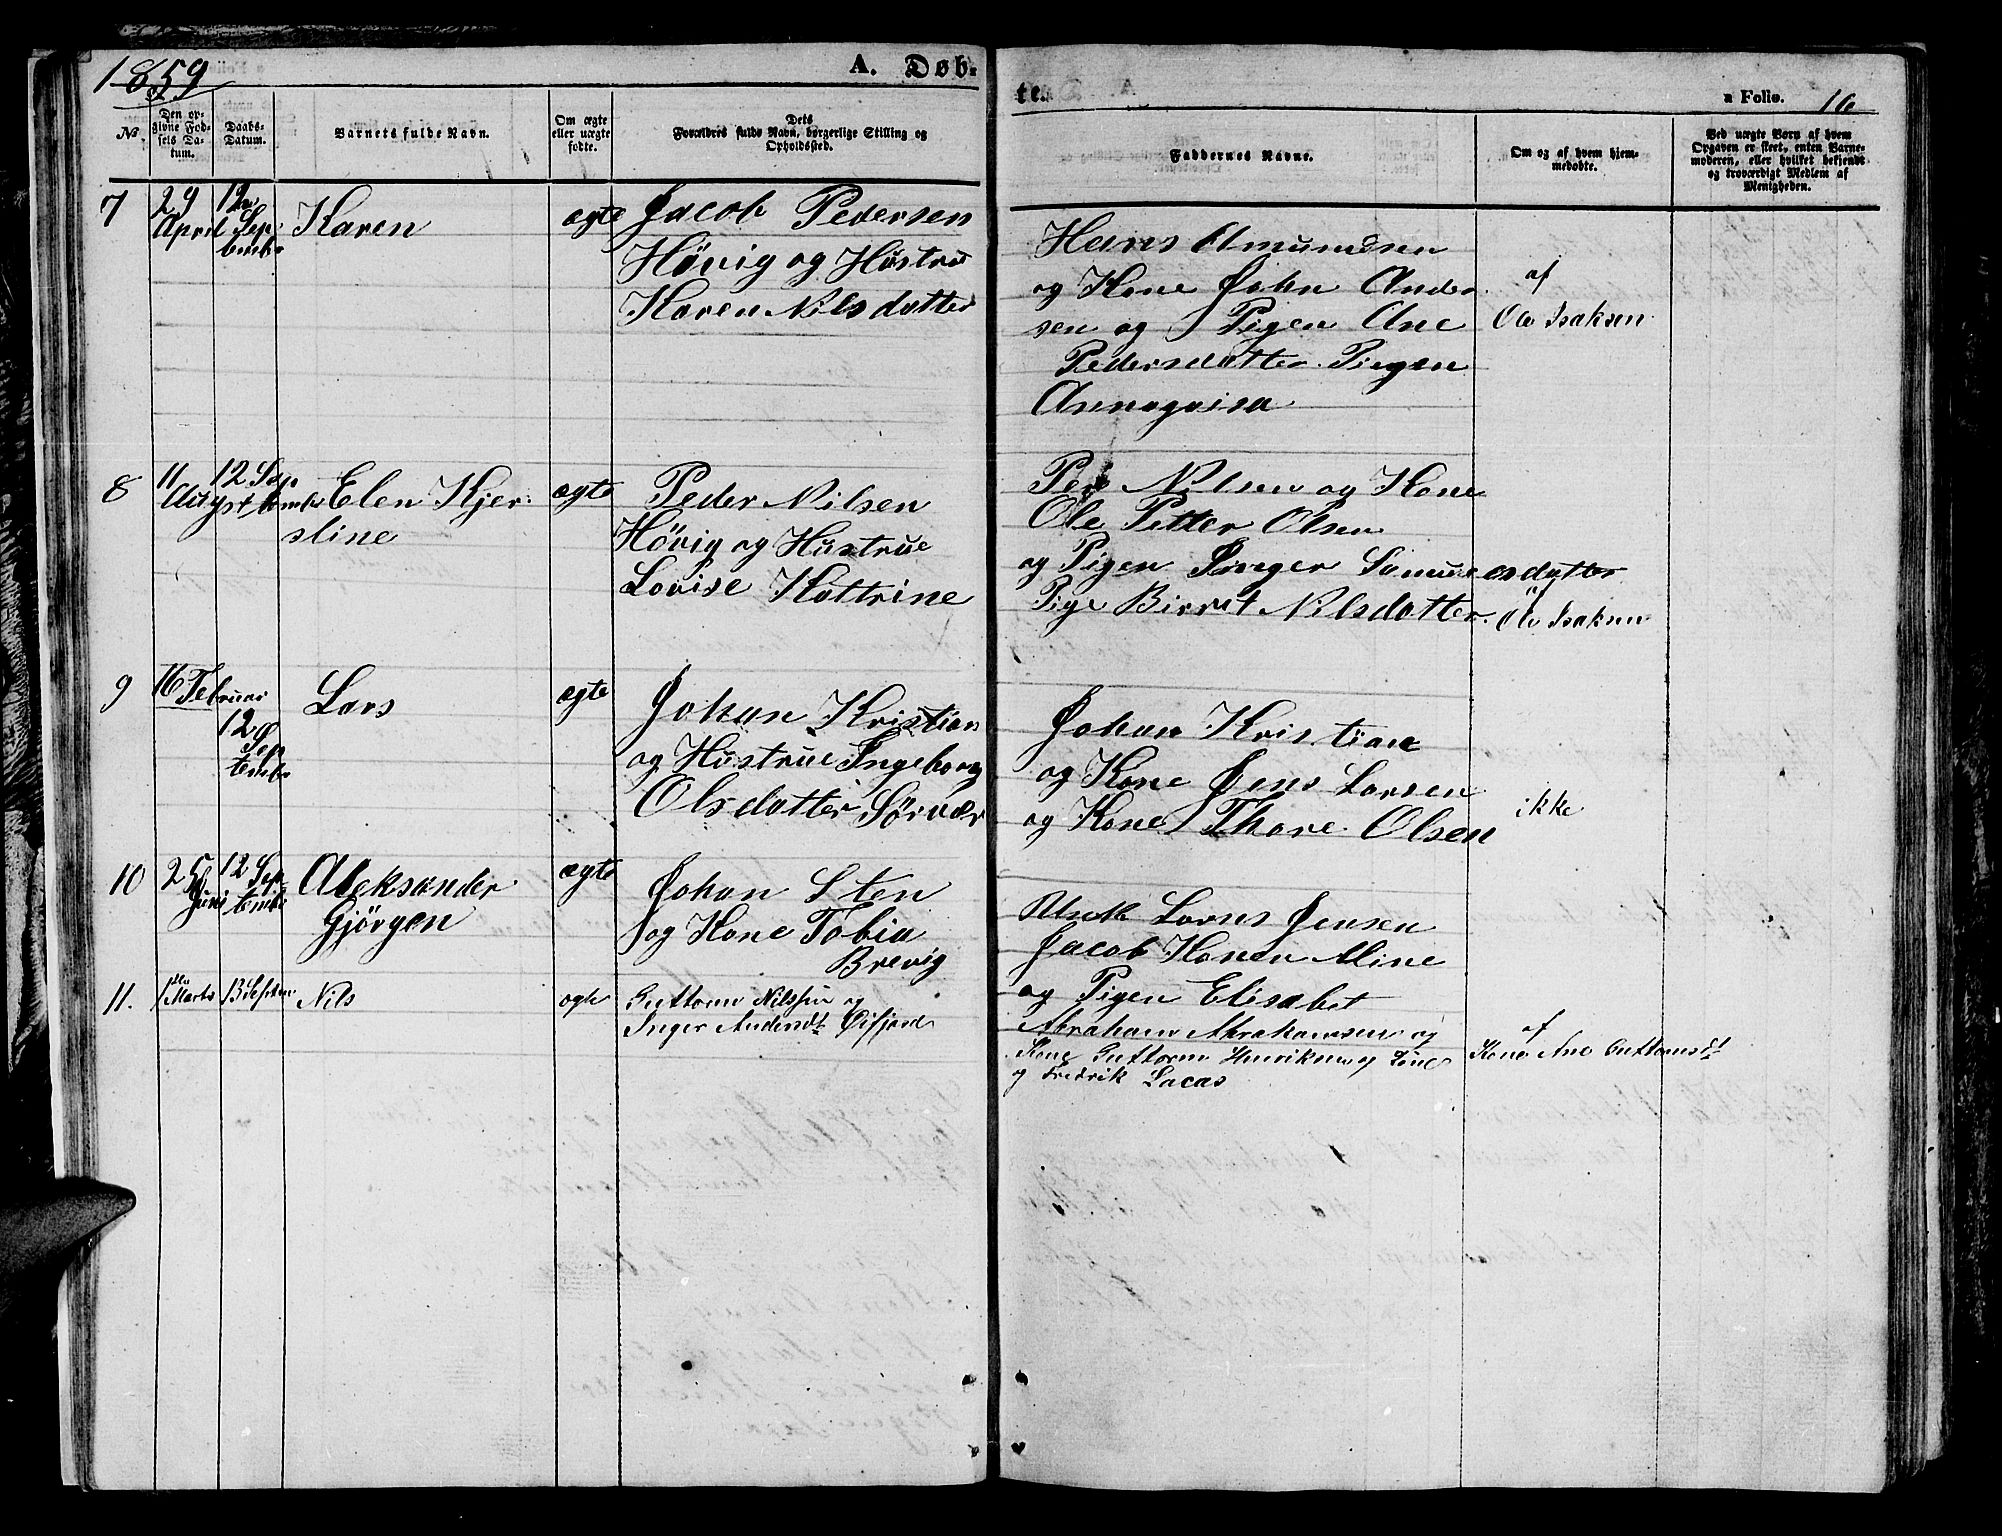 1859
A. Døb-
te.
a Folio. 16
No.
Den op-
givne Fød-
sels Da-
tum.
Daabs-
Datum.
Barnets fulde Navn.
Om ægte
eller uægte
fødte.
Dets
Forældres fulde Navn, borgerlige Stilling og
Opholdssted.
Faddernes Navne.
Om og af hvem hjem-
medøbte.
Ved uægte Børn af hvem
Opgaven er skeet, enten Barne-
moderen, eller hvilket bekjendt
og troværdigt Medlem af
Menigheden.
7
29
April
12te
Sep
tember
Karen
ægte
Jacob Pedersen
Hövig og Hustru
Karen Nilsdatter
Hans Amundsen
og Kone John Ander
sen og Pigen Ane
Pedersdatter Pigen
Annagaisa
af
Ole Isaksen
8
11
August
12 Sep
tember
Elen Kjer
stine
ægte
Peder Nilsen
Hövig og Hustrue
Lovise Kattrine
Per Nilsen og Kone
Ole Petter Olsen
og Pigen Inger Samuelsdatter
Pige Birret Nilsdatter
af
Ole Isaksen
9
16 Februar
12
Sep
tembr
Lars
ægte
Johan Kristian
og Hustrue Ingeborg
Olsdatter Sörvær
Johan Kristian
og Kone Jens Larsen
og Kone Thore Olsen
ikke
10
25
Juni
12 Sep
tembr
Aleksander
Gjörgen
ægte
Johan Sten
og Kone Tobia
Brevig
Larns Jensen
Jacob Konen Aline
og Pigen Elisabet
11.
1ste
Marts
13 Septem
Nils
ægte
Guttorm Nilssen og
Inger Andersdt Öifjord
Abraham Abrahamsen og
Kone Guttorm Henriksen og Kone
og Fredrik Lacas
af
Kone Ane Guttormsdt